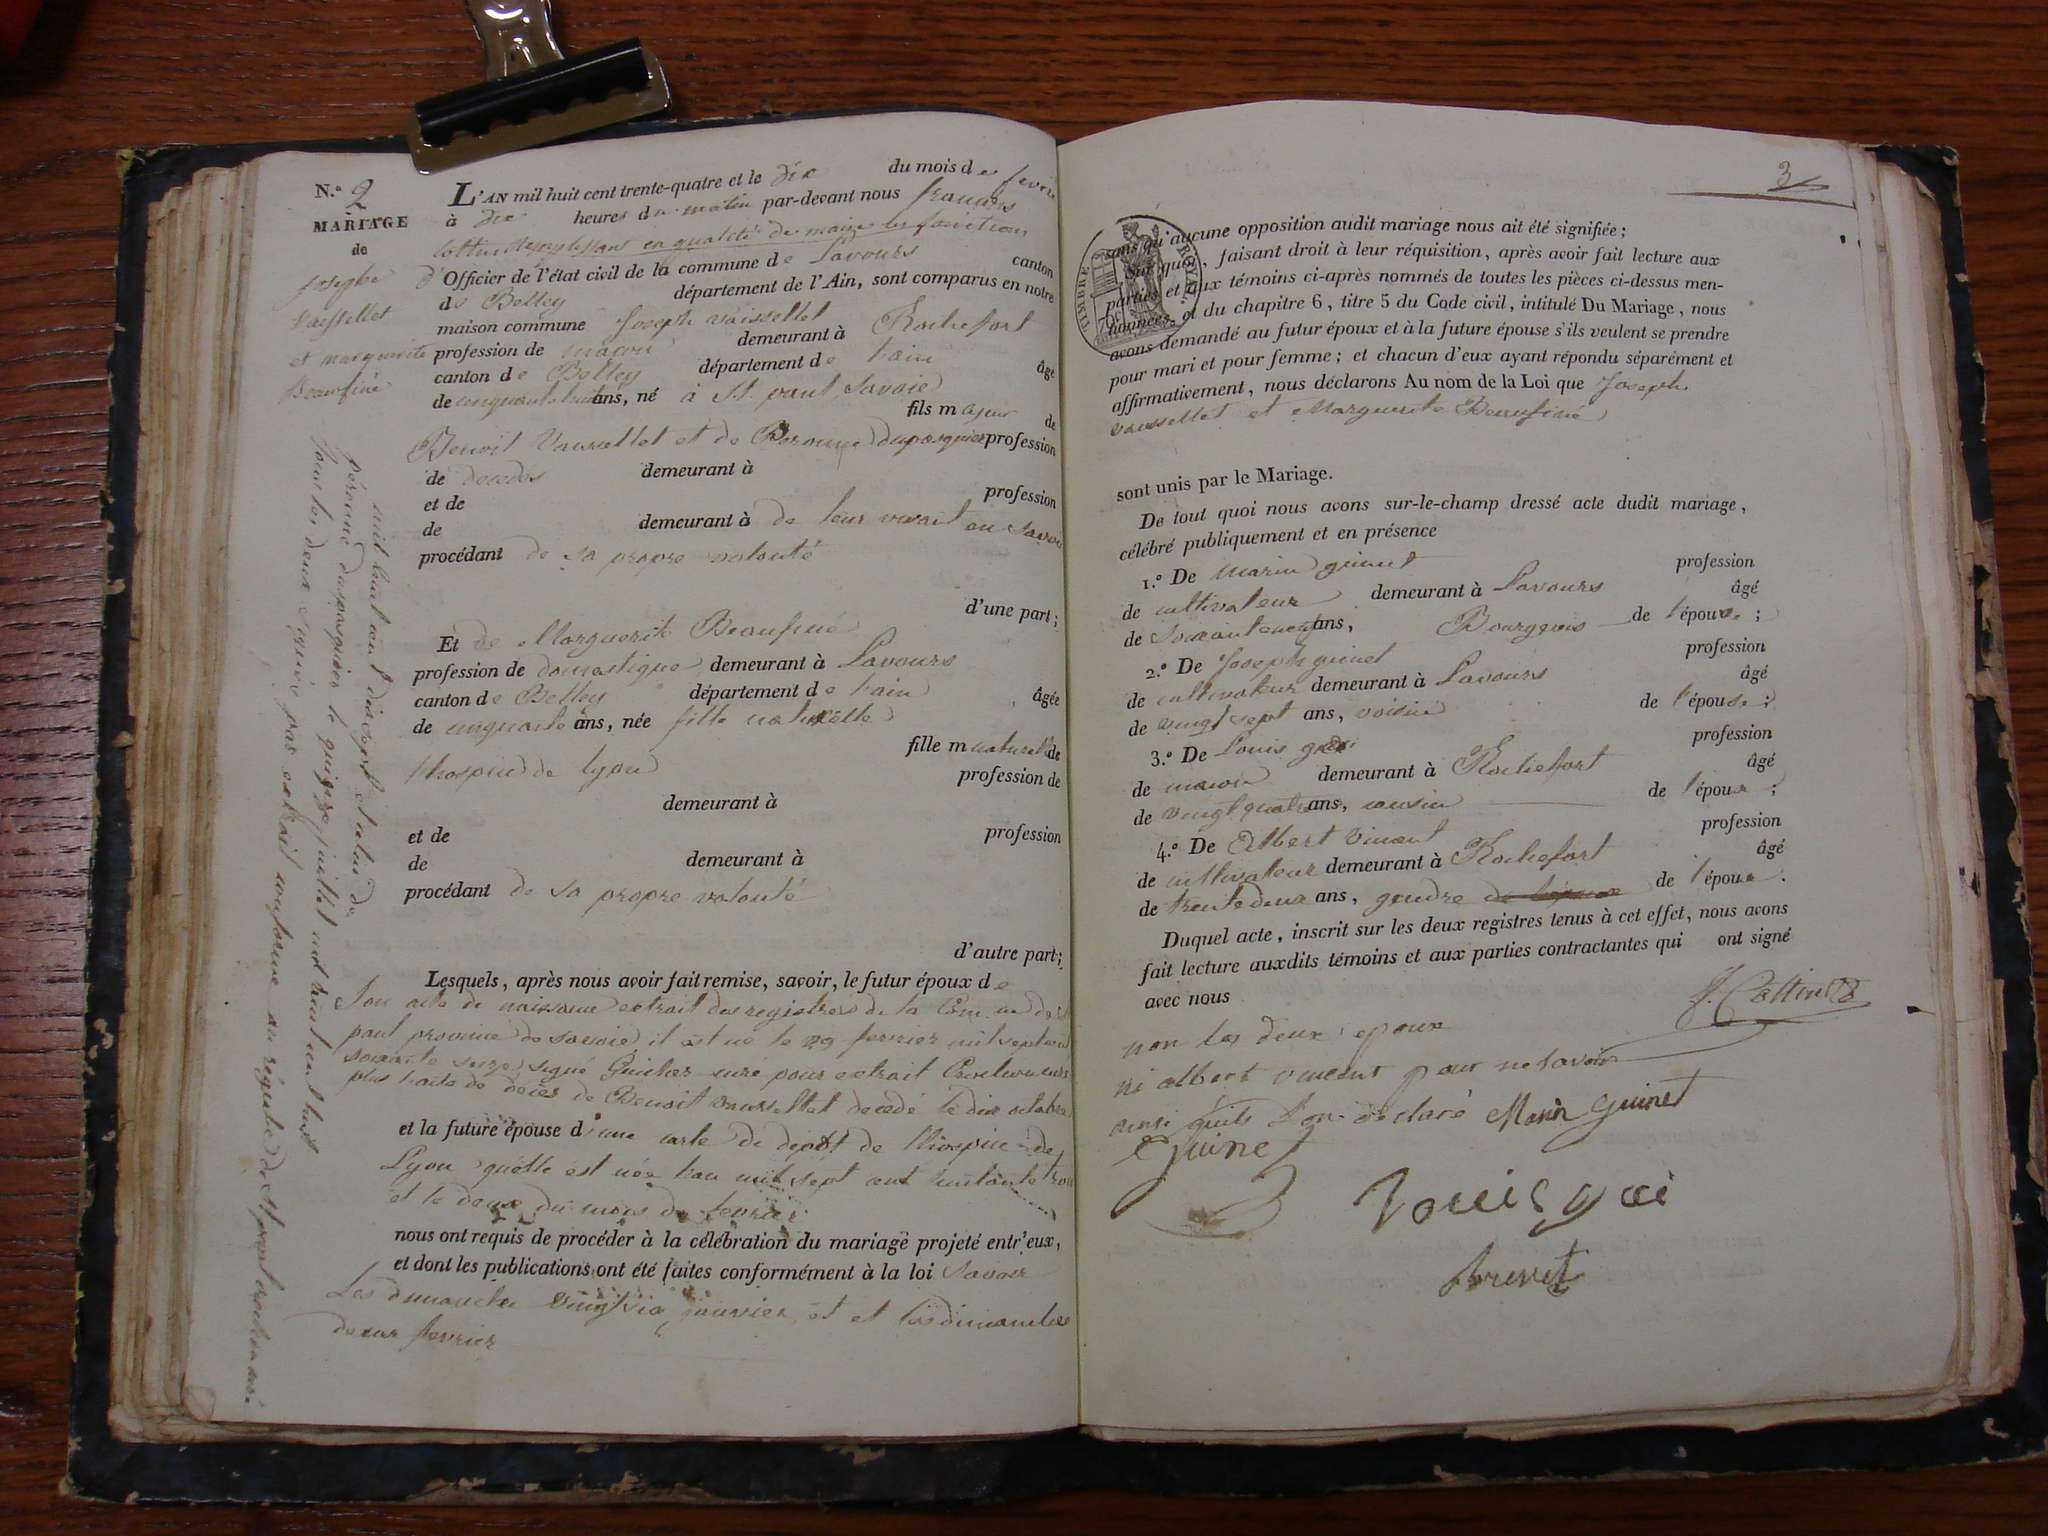 N.º 2
MARIAGE
de
Joseph
Vaissellet
et marguerite
Beaufiné
L'AN mil huit cent trente-quatre et le dix du mois de fevrier
à dix heures du matin par-devant nous francois
Cottin Remplissant en qualité de maire les fonctions
d'Officier de l'état civil de la commune de Lavours canton
de Belley département de l'Ain, sont comparus en notre
maison commune Joseph vaissellet
profession de maçon demeurant à Rochefort
canton de Belley département de l'ain âgé
de cinquante huit ans, né à St. paul Savoie
fils majeur de
Benoit Vaissellet et de Peronne dupasquier profession
de décédés demeurant à
et de profession
de demeurant à de leur vivant en Savoie
procédant de sa propre volonté
d'une part;
Et de Marguerite Beaufiné
profession de domestique demeurant à Lavours
canton de Belley département de l'ain âgée
de cinquante ans, née fille naturelle
fille m naturelle de
l'hospice de lyon profession de
demeurant à
et de profession
de demeurant à
procédant de sa propre volonté
d'autre part;
Lesquels, après nous avoir fait remise, savoir, le futur époux de
Son acte de naissance extrait des registres de la Commune de St
paul province de Savoie il est né le 29 fevrier mil sept cent
soixante seize signé Guicher curé pour extrait
plus l'acte de décés de Benoit vaissellet decedé le dix octobre
mil huit cent dix sept et celui de
péronne duspasquier le quinze juillet mil huit cent huit
tous les deux signés par extrait conforme au registre de St paul
et la future épouse d'une carte de depot de l'hospice de
Lyon qu'elle est née l'an mil sept cent huitante trois
et le deux du mois de fevrier
nous ont requis de procéder à la célébration du mariage projeté entr'eux,
et dont les publications ont été faites conformément à la loi savoir
Les dimanche vingt six janvier et et les dimanche
deux fevrier
3
TIMBRE ROYAL.
sans qu'aucune opposition audit mariage nous ait été signifiée;
Sur quoi, faisant droit à leur réquisition, après avoir fait lecture aux
parties et aux témoins ci-après nommés de toutes les pièces ci-dessus men-
tionnées, et du chapitre 6, titre 5 du Code civil, intitulé Du Mariage, nous
avons demandé au futur époux et à la future épouse s'ils veulent se prendre
pour mari et pour femme; et chacun d'eux ayant répondu séparément et
affirmativement, nous déclarons Au nom de la Loi que Joseph
vaissellet et Marguerite Beaufiné
sont unis par le Mariage.
De tout quoi nous avons sur-le-champ dressé acte dudit mariage,
célébré publiquement et en présence
1.º De marin guinet profession
de cultivateur demeurant à Lavours âgé
de Soixante ans, Bourgeois de l'épouse;
2.º De Joseph guinet profession
de cultivateur demeurant à Lavours âgé
de vingt sept ans, voisin de l'épouse;
3.º De Louis goi profession
de macon demeurant à Rochefort âgé
de vingt quatre ans, cousin de l'époux;
4.º De Albert vincent profession
de cultivateur demeurant à Rochefort âgé
de trente deux ans, gendre de l'époux.
Duquel acte, inscrit sur les deux registres tenus à cet effet, nous avons
fait lecture auxdits témoins et aux parties contractantes qui ont signé
avec nous
F. Cottin
non les deux epoux
ni albert vincent pour ne savoir
ainsi quils l'on déclaré Marin Guinet
Guinet
Louis goi